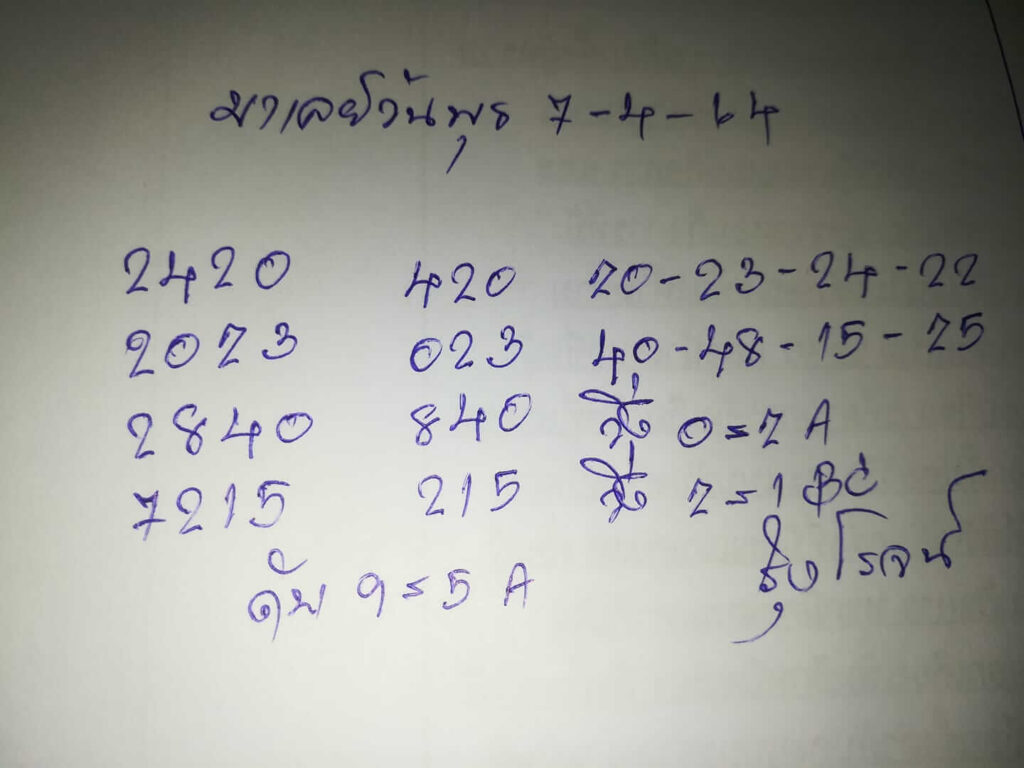 มาเลย์วันพุธ 7-4-64
2420 420 20-23-24-22
2023 023 40-48-15-25
2840 840 วิ่ง 0=2 A
7215 215 วิ่ง 2=1 BC
ดับ 9=5 A รุ่งโรจน์